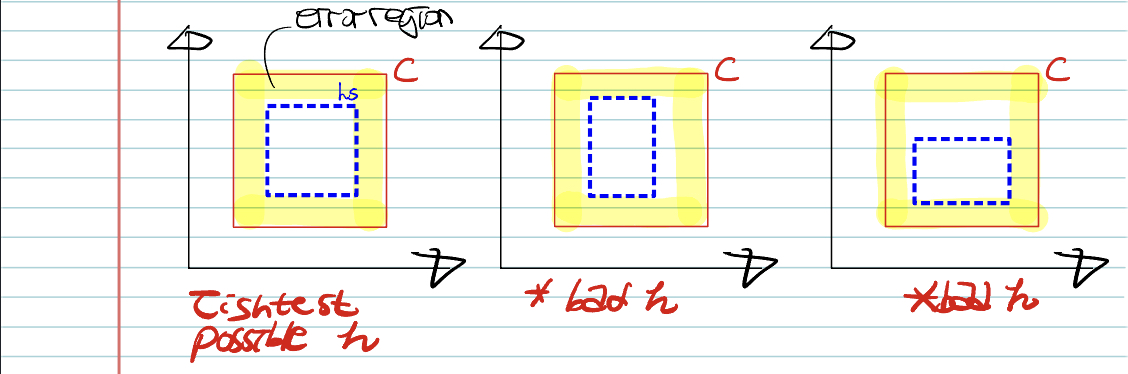 error region
C
hs
C
C
Tishtest
possible h
* bad h
*bad h